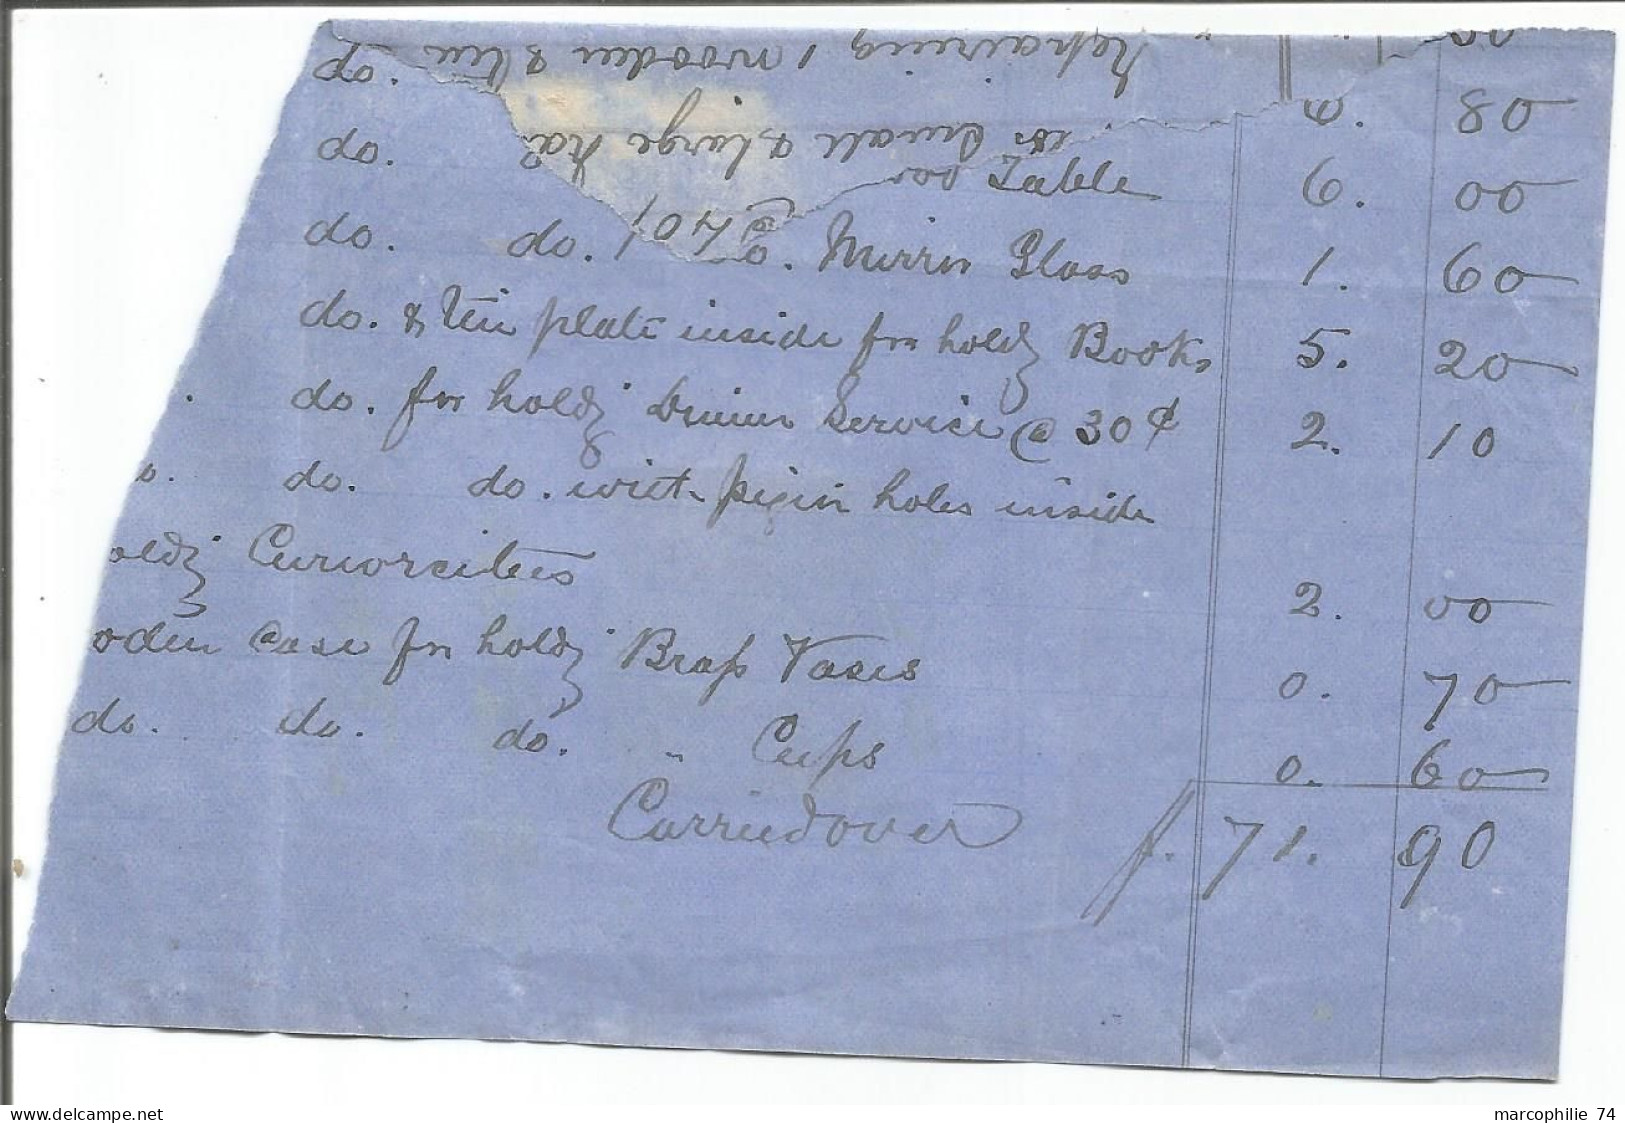 Repairing 1 wooden & tin
small & large
@ 40
do. 0. 80
do. Table 6. 00
do. do. do. Mirror Glass 1. 60
do. & tin plate inside for holdg Books 5. 20
do. for holdg Dinner Service @ 30 ¢ 2. 10
o. do. do. with pigin holes inside
oldg Curiorcities 2. 00
oden case for holdg Brass Vases 0. 70
do. do. do. " Cups 0. 60
Carried over f. 71. 90
marcophilie 74
delcampe.net